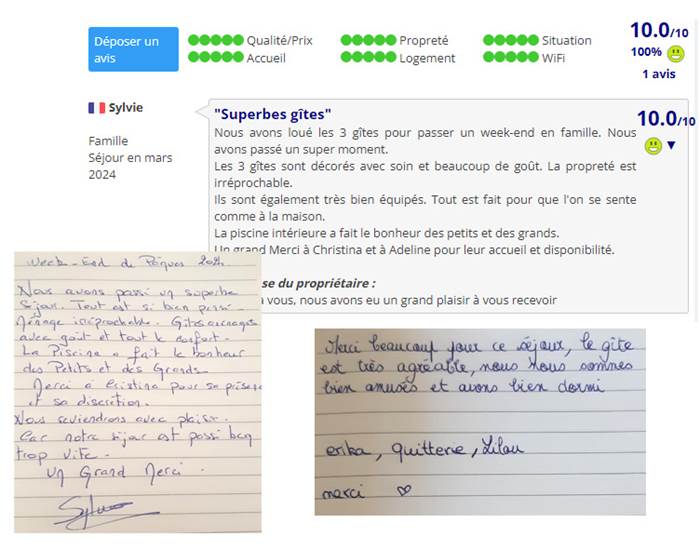 Déposer un
avis
Qualité/Prix
Propreté
Situation
Accueil
Logement
WiFi
10.0/10
100%
1 avis
Sylvie
Famille
Séjour en mars
2024
"Superbes gîtes"
10.0/10
Nous avons loué les 3 gîtes pour passer un week-end en famille. Nous
avons passé un super moment.
Les 3 gîtes sont décorés avec soin et beaucoup de goût. La propreté est
irréprochable.
Ils sont également très bien équipés. Tout est fait pour que l'on se sente
comme à la maison.
La piscine intérieure a fait le bonheur des petits et des grands.
Un grand Merci à Christina et à Adeline pour leur accueil et disponibilité.
se du propriétaire :
à vous, nous avons eu un grand plaisir à vous recevoir
Week-End de Pâques 2024
Nous avons passé un superbe
Séjour. Tout est si bien pensé.
Ménage irréprochable. Gîtes aménagés
avec goût et tout le confort.
La Piscine a fait le bonheur
des Petits et des Grands.
Merci à Cristina pour sa présence
et sa discrétion.
Nous reviendrons avec plaisir.
Car notre séjour est passé bien
trop vite.
Un Grand Merci.
Merci beaucoup pour ce séjour, le gîte
est très agréable, nous nous sommes
bien amusés et avons bien dormi
erika, Quitterie, Lilou
merci ♡